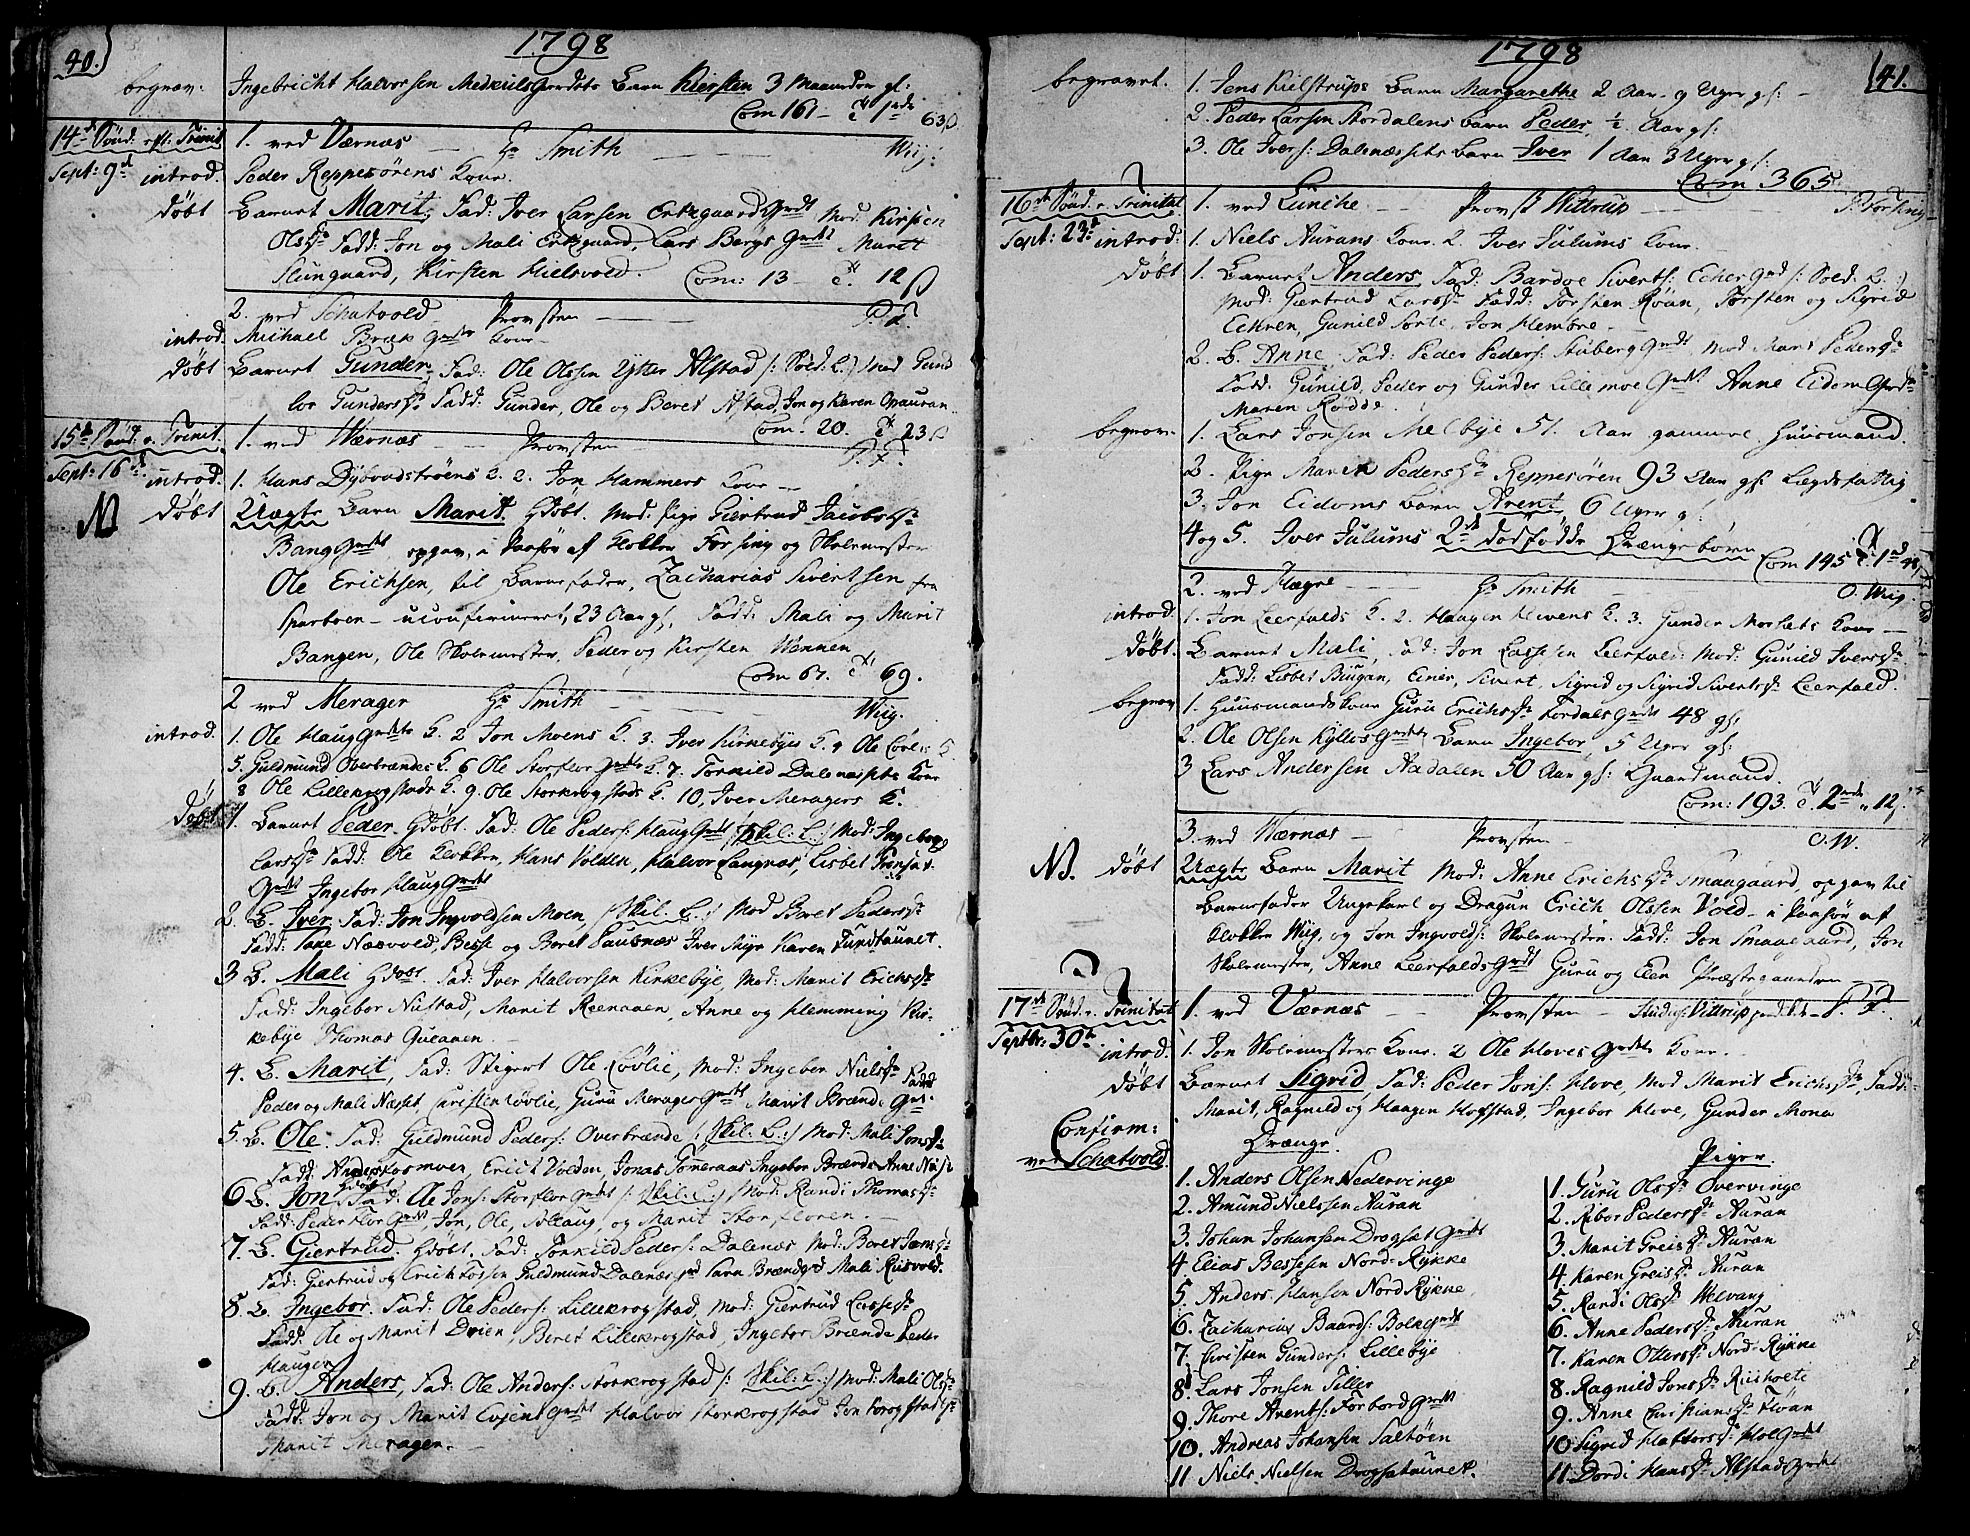 40.)
1798
begrav: Ingebricht Halvorsen Medkiilsgerdets Barn Kiersten 3 Maaneder gl:
Com 161 – 1 63
14de Sönd. eft: Trinit. 1. ved Værnæs – Hr Smith – Wiig:
Sept: 9de introd. Peder Reppesörens Kone.
döbt Barnet Marit, Fad: Iver Larsen Erksgaard Mod: Kirsten
Olsdr Fadd: Jon og Mali Erksgaard, Lars Bergs Marit
Stungaard, Kirsten Hielsvold. Com: 13 – 12 ß
2. ved Schatvold Provsten – P. F.
introd. Michael Bræk Kone –
döbt Barnet Gunder. Fad: Ole Olsen Ytter Alstad /: Sold: L:/ Mod Gund
lor Gundersdr Fadd: Gunder, Ole og Beret Alstad, Jon og Karen Opauran
Com: 20. 23 ß
15de Sönd. e. Trinit. 1. ved Værnæs – Provsten – P. F.
Sept: 16de introd. 1. Hans Dybvadströens K. 2. Jon Hammers Kone –
N döbt Uægte Barn Marit. Hdöbt. Mod: Pige Giertrud Jacobsdr
Bang opgav, i Paasÿn af Klokker Forsing og Skolemester
Ole Erichsen, til Barnefader, Zacharias Sivertsen fra
Sparboen – uconfirmeret, 23 Aar gl, Fadd: Mali og Marit
Bangen, Ole Skolemester, Peder og Kirsten Wennen
Com 67. 69.
2 ved Merager Hr Smith – Wiig.
introd. 1. Ole Haug K. 2 Jon Moens K. 3. Iver Kirkebyes K. 4 Ole
5. Guldmund Overbrændes K. 6 Ole Storflor K. 7. Torkild Dalenæssets Kone
8 Ole Lillekrogstads K. 9. Ole Storkrogstads K. 10, Iver Meragers K.
döbt 1. Barnet Peder. Hdöbt. Fad: Ole Peders: Haug /: Skil: L:/ Mod: Ingebor
Larsdr Fadd: Ole Klokken, Hans Volden, Halvor Langnæs, Lisbet
Ingebor Haug
2. B. Iver. Fad: Jon Ingvoldsen Moen, /: Skil: L:/ Mod Beret Pedersdr
Fadd: Take Næsvold, Besse og Beret Pausnæs Iver Myr Karen Fundtaunet.
3 B. Mali Hdöbt. Fad: Iver Halvorsen Kirkebye, Mod: Marit Erichsdr
Fadd: Ingebor Nustad, Marit Reenaaen, Anne og Flemming Kir-
kebye Thomas
4. B. Marit, Fad: Stigert Ole. Lövlie, Mod: Ingebor Nielsdr Fadd:
Peder og Mali Næsset, Christen Lövlie, Guru Merager Marit Brænde
5. B. Ole. Fad: Guldmund Peders: Overbrænde /: Skil: L:/ Mod: Mali Jonsdr:
Fadd: Anders Kosmoen, Erich Volden, Jonas Tömeraas Ingebor Brænde Anne
6 B. Jon Hdöbt Fad: Ole Jons: Storflor /: Skil: L:/ Mod: Randi Thomasdr
Fadd: Peder Flor, Jon, Ole, Aslaug, og Marit Storfloren. –
7. B. Giertrud. Hdöbt. Fad: Torkild Peders: Dalenæs Mod: Beret
Fad: Giertrud og Erich Fossen Guldmund Dalenæs Sara Brænd Mali Riisvold.
8 B. Ingebor. Fad: Ole Peders: Lillekrogstad, Mod: Giertrud Lassesdr
Fadd: Ole og Marit Dvien, Beret Lillekrogstad, Ingebor Brænde Peder
Haugen
9. B. Anders, Fad: Ole Anders: Storkrogstad /: Skil: L:/ Mod: Mali Olsdr
Fadd: Jon og Marit Evjen Halvor Storkrogstad Jon Krogstad
Marit Meragen. –
1798 (41.
begravet. 1. Jens Kielstrups Barn Margarethe 2 Aar 9 Uger gl: –
2. Peder Larsen Stordalens Barn Peder, ½ Aar gl:
3. Ole Ivers: Dalenæssets Barn Iver 1 Aar 3 Uger gl:
Com 365
16de Sönd. e. Trinitat 1. ved Lunche – Provst Wittrup – P: Forsing
Sept: 23de introd: 1. Niels Aurans Kone. 2. Iver Julums Kone.
döbt 1. Barnet Anders Fad: Bardoe Siverts: Echer /: Sold: L:/
Mod: Giertrud Larsdr Fadd: Torsten Röan, Torsten og Sigrid
Echren, Gunild Sorte, Jon Hembre –
2. B. Anne. Fad: Peder Peders: Stuberg Mod Marit Pedersdr
Fadd: Gunild, Peder og Gunder Lillemoe Anne Eidem
Maren Rödde.
begrav: 1. Lars Jonsen Melbye 51. Aar gammel. Huusmand.
2. Pige Maren Pedersdr Reppesören 93 Aar gl: Lægdsfattig
3. Jon Eidems Barn Arent 6 Uger gl:
4 og 5. Iver Julums 2de dödfödde Drængebörn Com 145
2. ved Hegre – Hr Smith – O. Wiig.
introd. 1. Jon Leerfalds K. 2. Haagen Klevens K. 3. Gunder Morkets Kone –
döbt. Barnet Mali, Fad: Jon Lassesen Leerfald: Mod: Gunild Iversdr.
Fadd: Lisbet Biugan, Einer, Sivert, Sigrid og Sigrid Sivertsdr Leerfald.
begrav 1. Huusmands Kone Guru Erichsdr Fordals 48 gl:
2. Ole Olsen Kyllos Barn Ingebor, 5 Uger gl:
3 Lars Andersen Aadalen 50 Aar gl: Gaardmand.
Com: 193. 2 12
3. ved Værnæs – Provsten – O. W.
N. döbt Uægte Barn Marit Mod: Anne Erichsdr Smaagaard, opgav til
Barnefader Ungekarl og Dragun Erich Olsen Vold – i Paasÿn af
Klokker Wiig, og Jon Ingvolds: Skolemester. Fadd: Jon Smaagaard, Jon
Skolemester, Anne Leerfalds Guru og Elen Præstegaarden
17de Sönd. e. Trinitat 1. ved Værnæs – Provsten – Stud: Wittrup – P. F.
Septbr: 30te. introd. 1. Jon Skolemesters Kone. 2 Ole Hoves Kone. –
döbt Barnet Sigrid, Fad: Peder Jons: Hove, Mod Marit Erichsdr, Fadd:
Marit, Ragnild og Haagen Hofstad, Ingebor Hove, Gunder Mona
Confirm: ved Schatvold.
Drænge.
1. Anders Olsen Nedervinge
2. Amund Nielssen Auran
3. Johan Johansen Drogset
4 Elias Bessesen Nord-Rykke
5. Anders Hansen Nord Rykne
6. Zacharias Baards: Bole
7. Christen Gunders: Lillebye
8. Lars Jonsen Tiller
9. Thore Arents: Forbord
10. Andreas Johansen Saltöen
11 Niels Nielsen Drogsetaunet.
Piger.
1. Guru Olsdr Overvinge
2. Ribor Pedersdr Auran
3. Marit Greisdr Auran
4. Karen Greisdr Auran
5. Randi Olsdr Welvang
6. Anne Pedersdr Auran
7. Karen Ottersdr Nord-Rykke
8. Ragnild Jonsdr
9. Anne Christiansdr Flöan
10 Sigrid
11. Dordi Hansdr Alstad